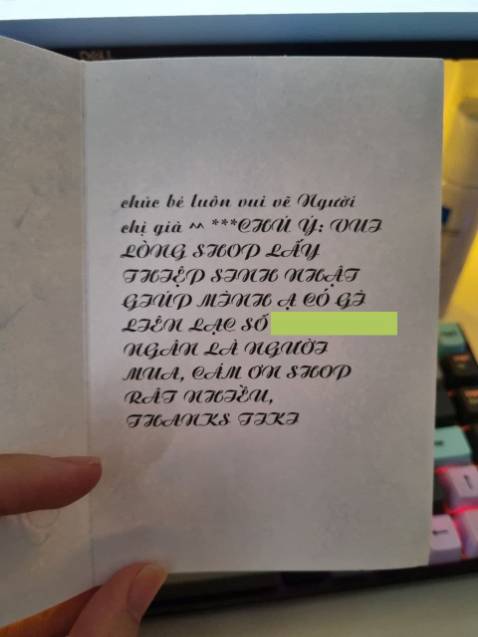 DELL
chúc bé luôn vui vẽ Người
chị già ^^ ***CHÚ Ý: VUI
LÒNG SHOP LẤY
THIỆP SINH NHẬT
GIÚP MÌNH Ạ CÓ GÌ
LIÊN LẠC SỐ
NGÂN LÀ NGƯỜI
MUA, CÁM ƠN SHOP
RẤT NHIỀU,
THANKS TIKI